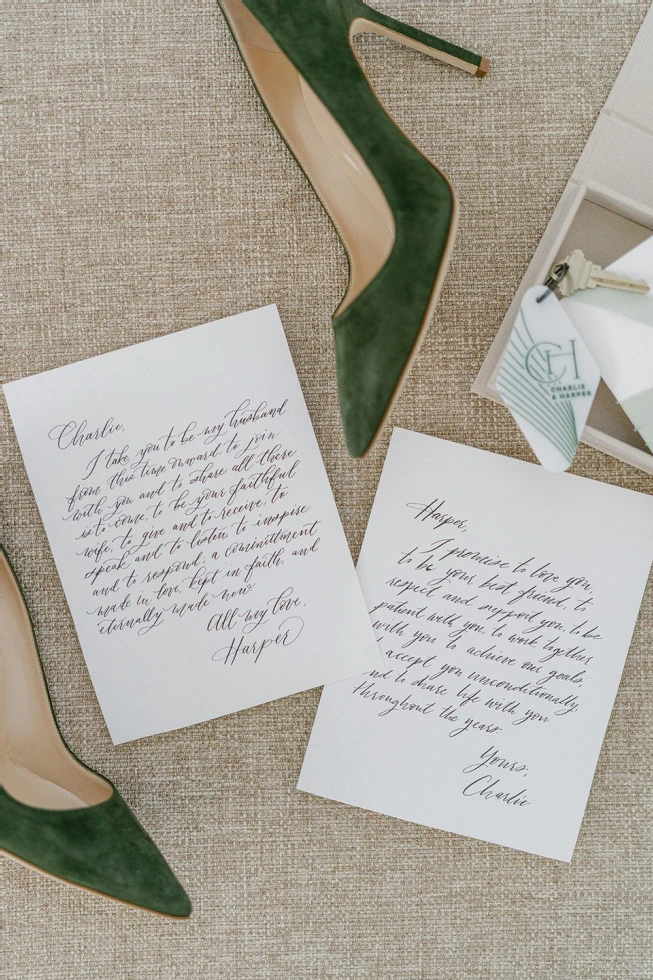 Charlie,
I take you to be my husband
from this time onward, to join
with you and to share all there
is to come, to be your faithful
wife, to give and to receive, to
speak and to listen, to inspire
and to respond; a committment
made in love, kept in faith, and
eternally made new.
All my love,
Harper
Harper,
I promise to love you,
to be your best friend, to
respect and support you, to be
patient with you, to work together
with you to achieve our goals,
accept you unconditionally,
and to share life with you
throughout the years.
Yours,
Charlie
CH
CHARLIE
& HARPER